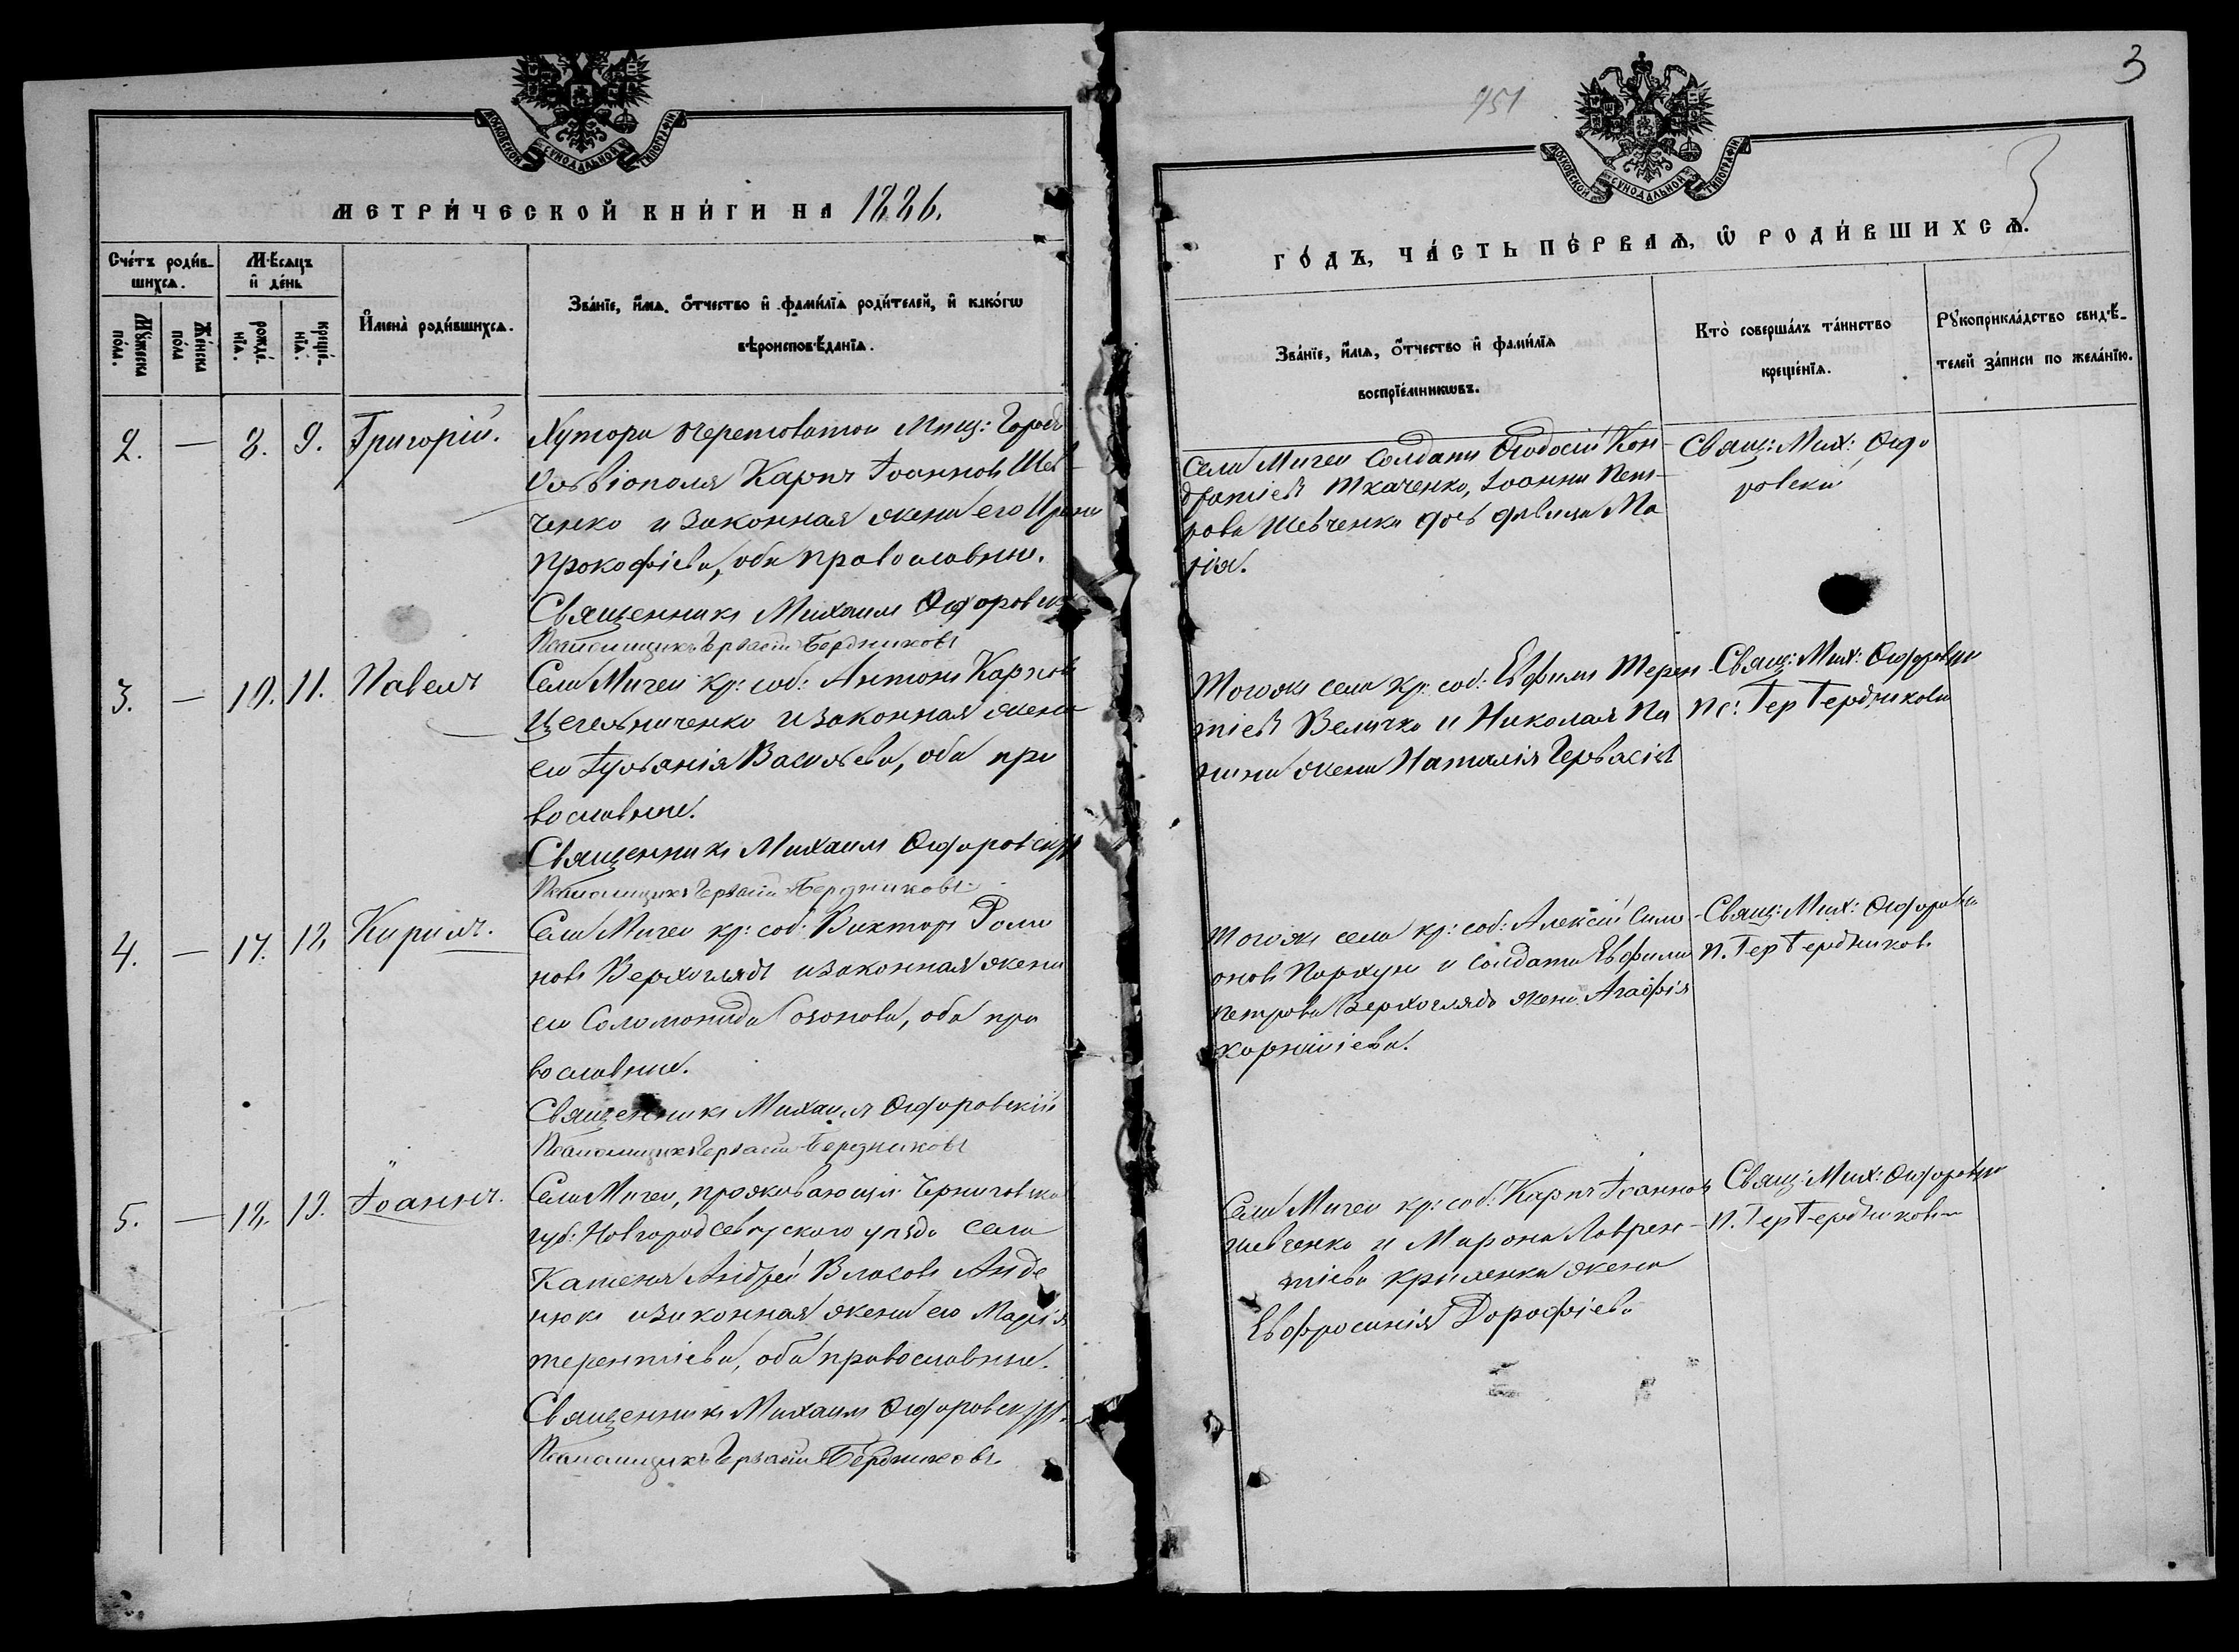 МОСКОВСКОЙ СУНОДАЛЬНОЙ ТИПОГРАФІИ
МЕТРИ́ЧЕСКОЙ КНИ́ГИ НА 1886.
Сче́тъ роди́в-
шихсѧ.
М҃-ѣсѧцъ
и҆ де́нь
Мꙋ́жеска по́ла.
Же́нска по́ла
рожде́-нїѧ.
креще́-нїѧ.
И҆мена̀ роди́вшихсѧ.
Зва́нїе, и҆́мѧ, ѻ҆́тчество и҆ фами́лїѧ роди́телей, и҆ како́гѡ
вѣроисповѣ́данїѧ.
2. — 8. 9. Григорій.
Хутора Мѣщ: Города
Ольвіополя Карпъ Іоанновъ Шев-
ченко и законная жена его Ирина
Прокофіева, оба православные.
Священникъ Михаилъ
Псаломщикъ Гервасій Бердниковъ
3. — 10. 11. Павелъ
Села Мигеи кр: соб: Антонъ Карповъ
Цегельниченко и законная жена
его Іульянія Васильева, оба пра
вославные.
Священникъ Михаилъ
Псаломщикъ Гервасій Бердниковъ
4. — 17. 18. Кирилъ.
Села Мигеи кр: соб: Викторъ Рома
новъ Верхоглядъ и законная жена
его Соломонида Созонова, оба пра
вославные.
Священникъ Михаилъ
Псаломщикъ Гервасій Бердниковъ
5. — 18. 19. Іоаннъ.
Села Мигеи, проживающій Черниговской
губ: Новгородсѣверского уѣзда села
Каменя Андрей Власовъ Анде
нюкъ и законная жена его Марія
Терентіева, оба православные.
Священникъ Михаилъ
Псаломщикъ Гервасій Бердниковъ
951
3
МОСКОВСКОЙ СУНОДАЛЬНОЙ ТИПОГРАФІИ
ГО́ДЪ, ЧА́СТЬ ПЕ́РВАѦ, Ѡ҆ РОДИ́ВШИХСѦ.
Зва́нїе, и҆́мѧ, ѻ҆́тчество и҆ фами́лїѧ
воспрїе́мникѡвъ.
Кто̀ соверша́лъ та́инство
креще́нїѧ.
Рꙋкоприкла́дство свидѣ́-
телей за́писи по жела́нїю.
Села Мигеи солдатъ Ѳеодосій Кон-
дратіевъ Ткаченко, Іоанна Пет-
рова Шевченка дочь дѣвица Ма
рія.
Свящ: Мих:
Тогожъ села кр: соб: Евфимъ Терен
тіевъ Величко и Николая Па
жена Наталія Гервасіев
Свящ: Мих:
Пс: Гер Бердниковъ
Тогожъ села кр: соб: Алексій Симе
оновъ Пархунъ и солдата Евфима
Петрова Верхогляда жена Агафія
Корниліева.
Свящ: Мих:
П. Гер Бердниковъ
Села Мигеи кр: соб: Карпъ Іоанновъ
Шевченко и Мирона Лаврен-
тіева Криленка жена
Евфросинія Дорофіева
Свящ: Мих:
П. Гер Бердниковъ